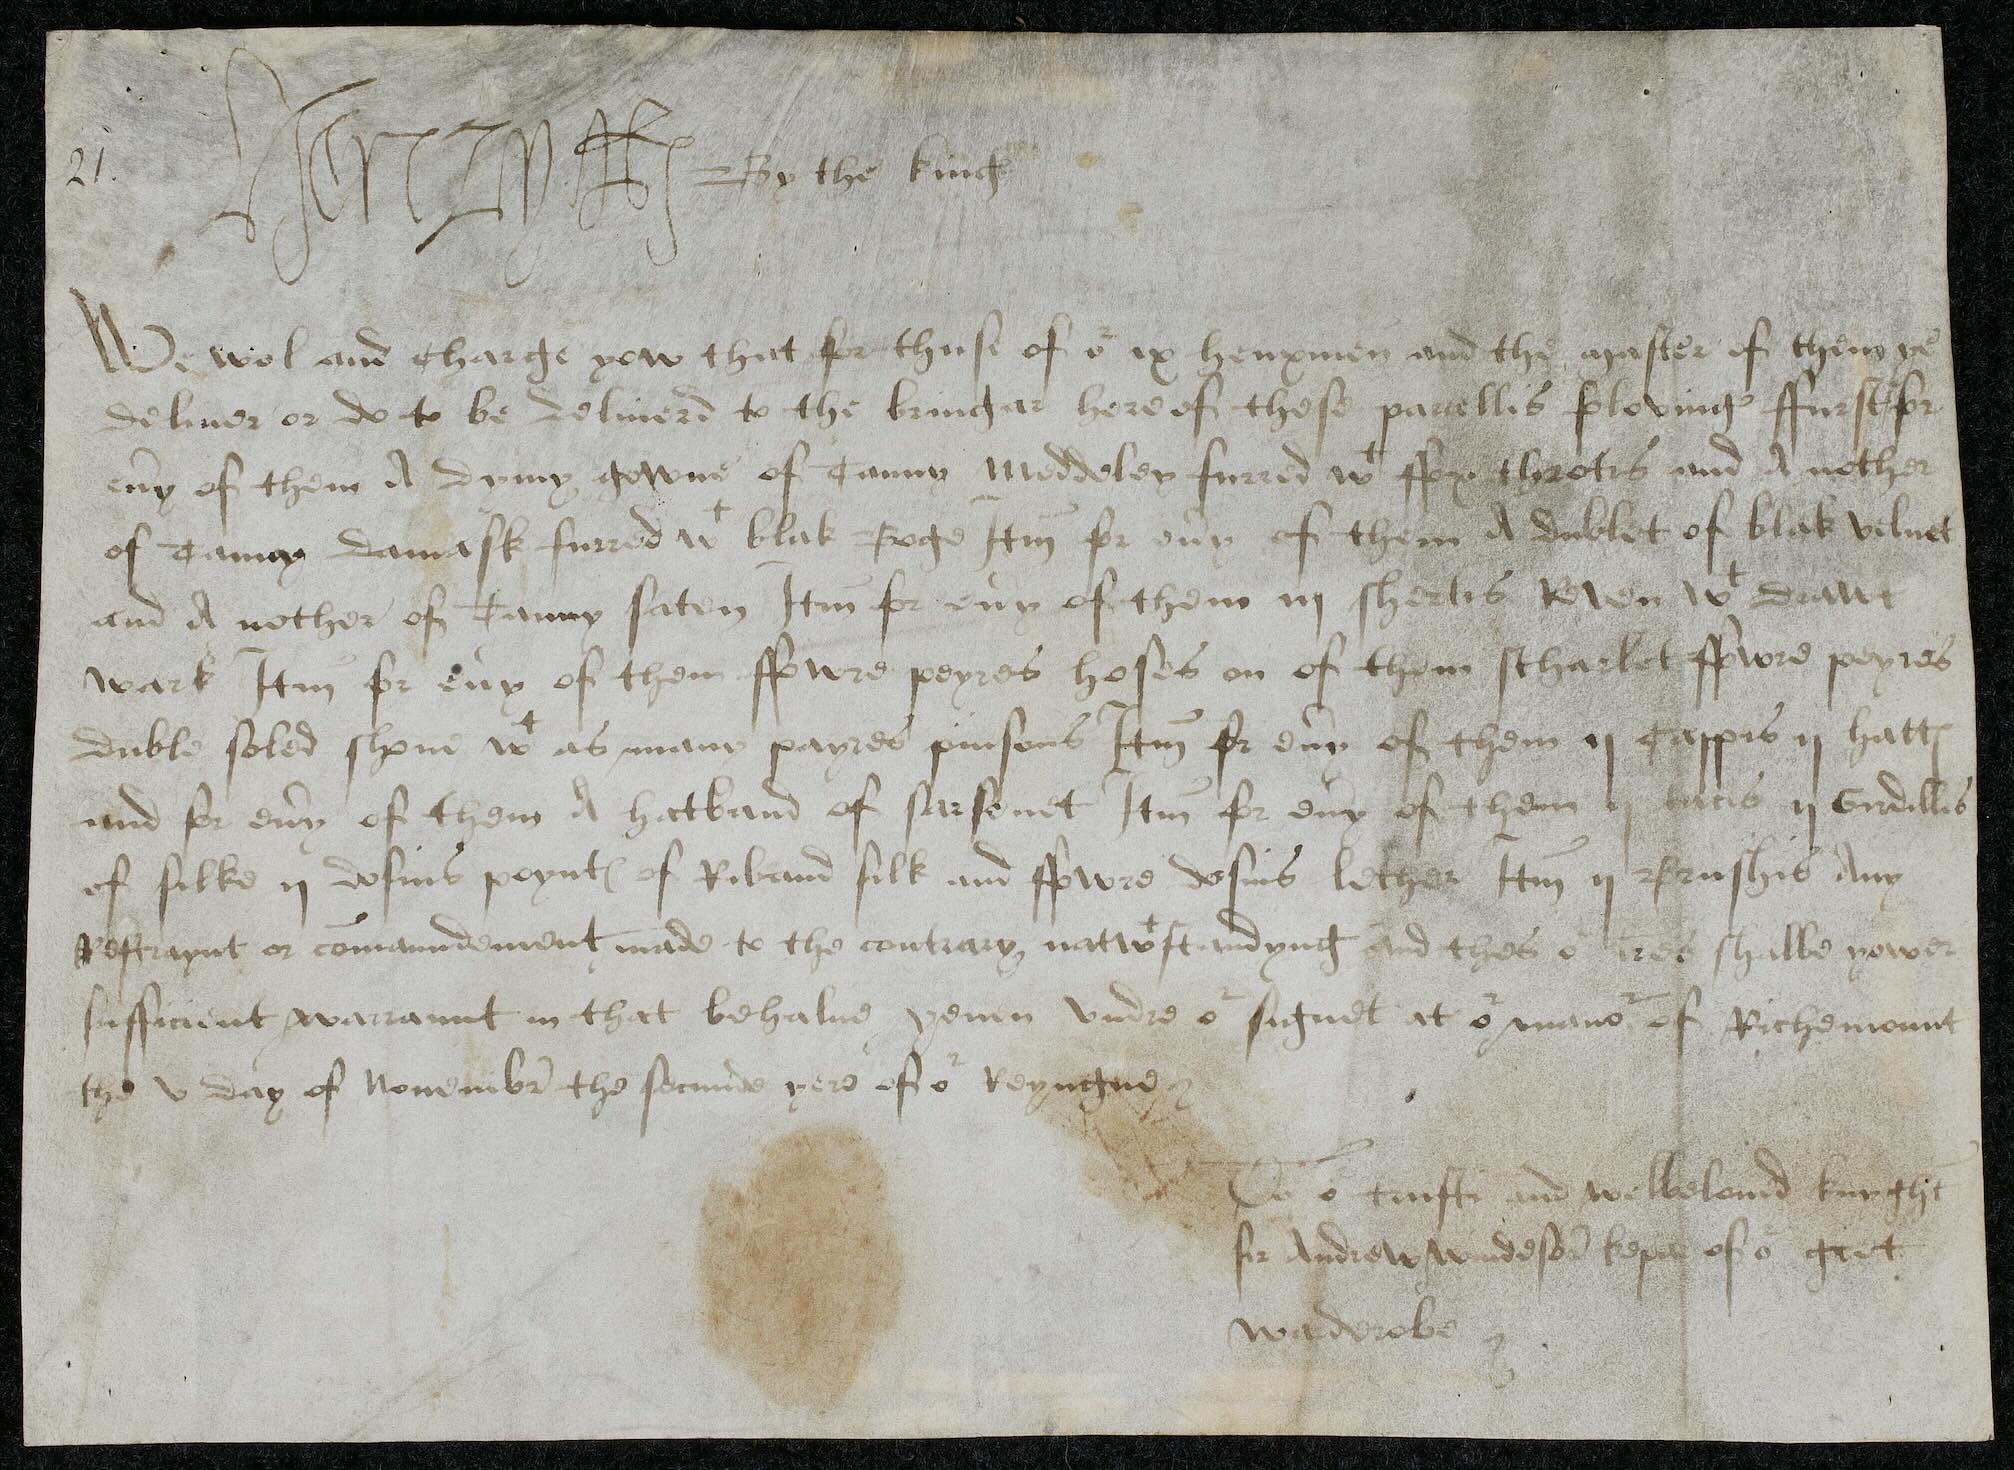 21.
Henry R By the king
We wol and Charge yow that for thuse of oʳ ix henxmen and the master of them ye
deliuer or do to be deliuerd to the bringar hereof these parcellis foloving ffurst for
eu̅y of them A Dymy gowne of Tanny Meddeley furred wᵗ ffox throtis and A nother
of Tanny Damask furred wᵗ blak Boge Itm̅ for eu̅y of them A dublet of blak veluet
and A nother of Tanny saten Itm̅ for eu̅y of them iij shertis wᵗ Drawt
wark Itm̅ for eu̅y of them ffowre peyres hoses on of them scharlet ffowre peyres
duble soled shone wᵗ as many payres pinsons Itm̅ for eu̅y of them ij Cappis ij hattꝭ
and for eu̅y of them A hatband of sarsenet Itm̅ for eu̅y of them ij lacis ij Girdillis
of silke ij dosins poyntꝭ of Riband silk and ffowre dosins lether Itm̅ ij Brushis Any
Restraynt or com̅aundement made to the contrary natwᵗstandyng And thes oʳ l̅res shalbe yower
sufficient warraunt in that behalue yeuen Vndre oʳ signet at oʳ manoʳ of Richemount
the v day of Nouembr̅ the secunde yere of oʳ Reyngne
To oʳ trusti and welbelouid knyght
sir Andrew Windesor̅ keper of oʳ gret
warderobe